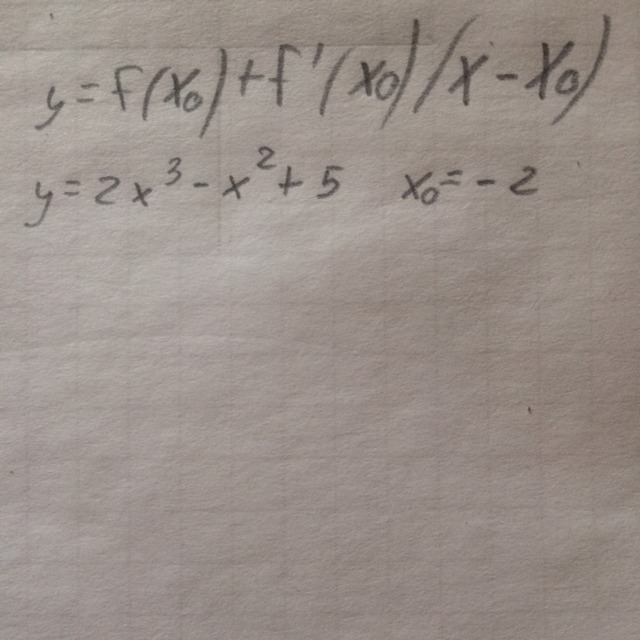 y=f(x₀)+f'(x₀)(x-x₀)
y=2x³-x²+5 x₀=-2